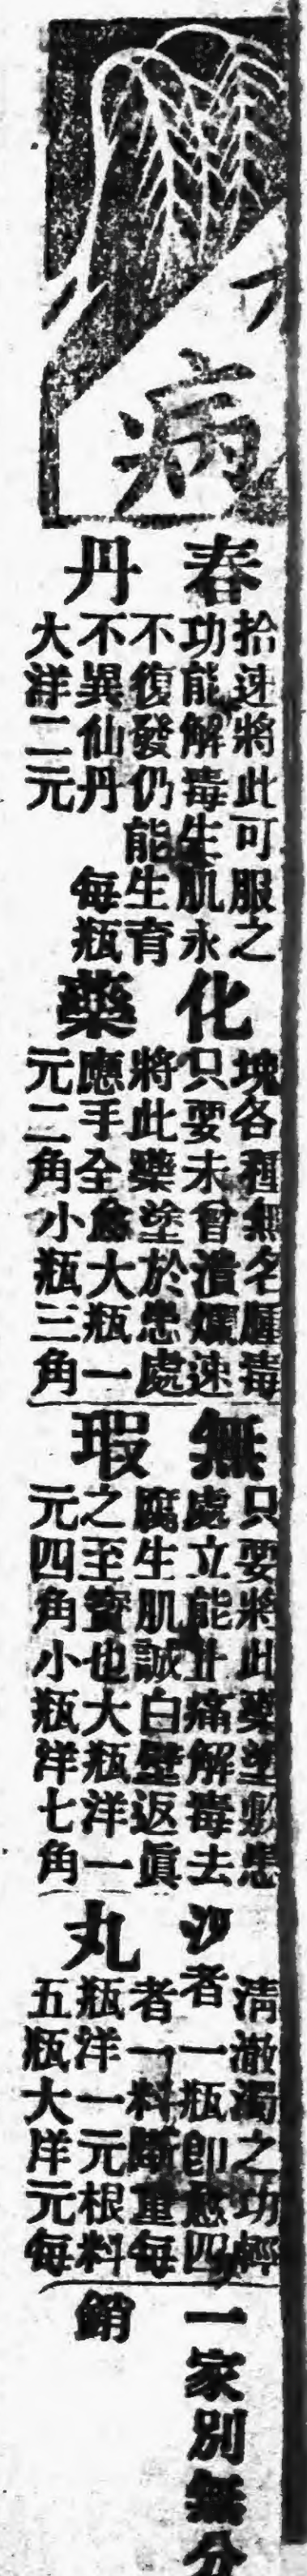 病
春
丹
拾速將此可服之
功能解毒生肌永
不復發仍能生育
不異仙丹 每瓶
大洋二元
化
藥
塊各種無名腫毒
只要未曾潰爛速
將此藥塗於患處
應手全愈大瓶一
元二角小瓶三角
無
瑕
只要將此藥塗敷患
處立能止痛解毒去
腐生肌誠白璧返眞
之至寶也大瓶洋一
元四角小瓶洋七角
沙
丸
清澈濁之功輕
者一瓶卽愈四
者一料斷重每
瓶洋一元根料
五瓶大洋元每
一家別無分
銷